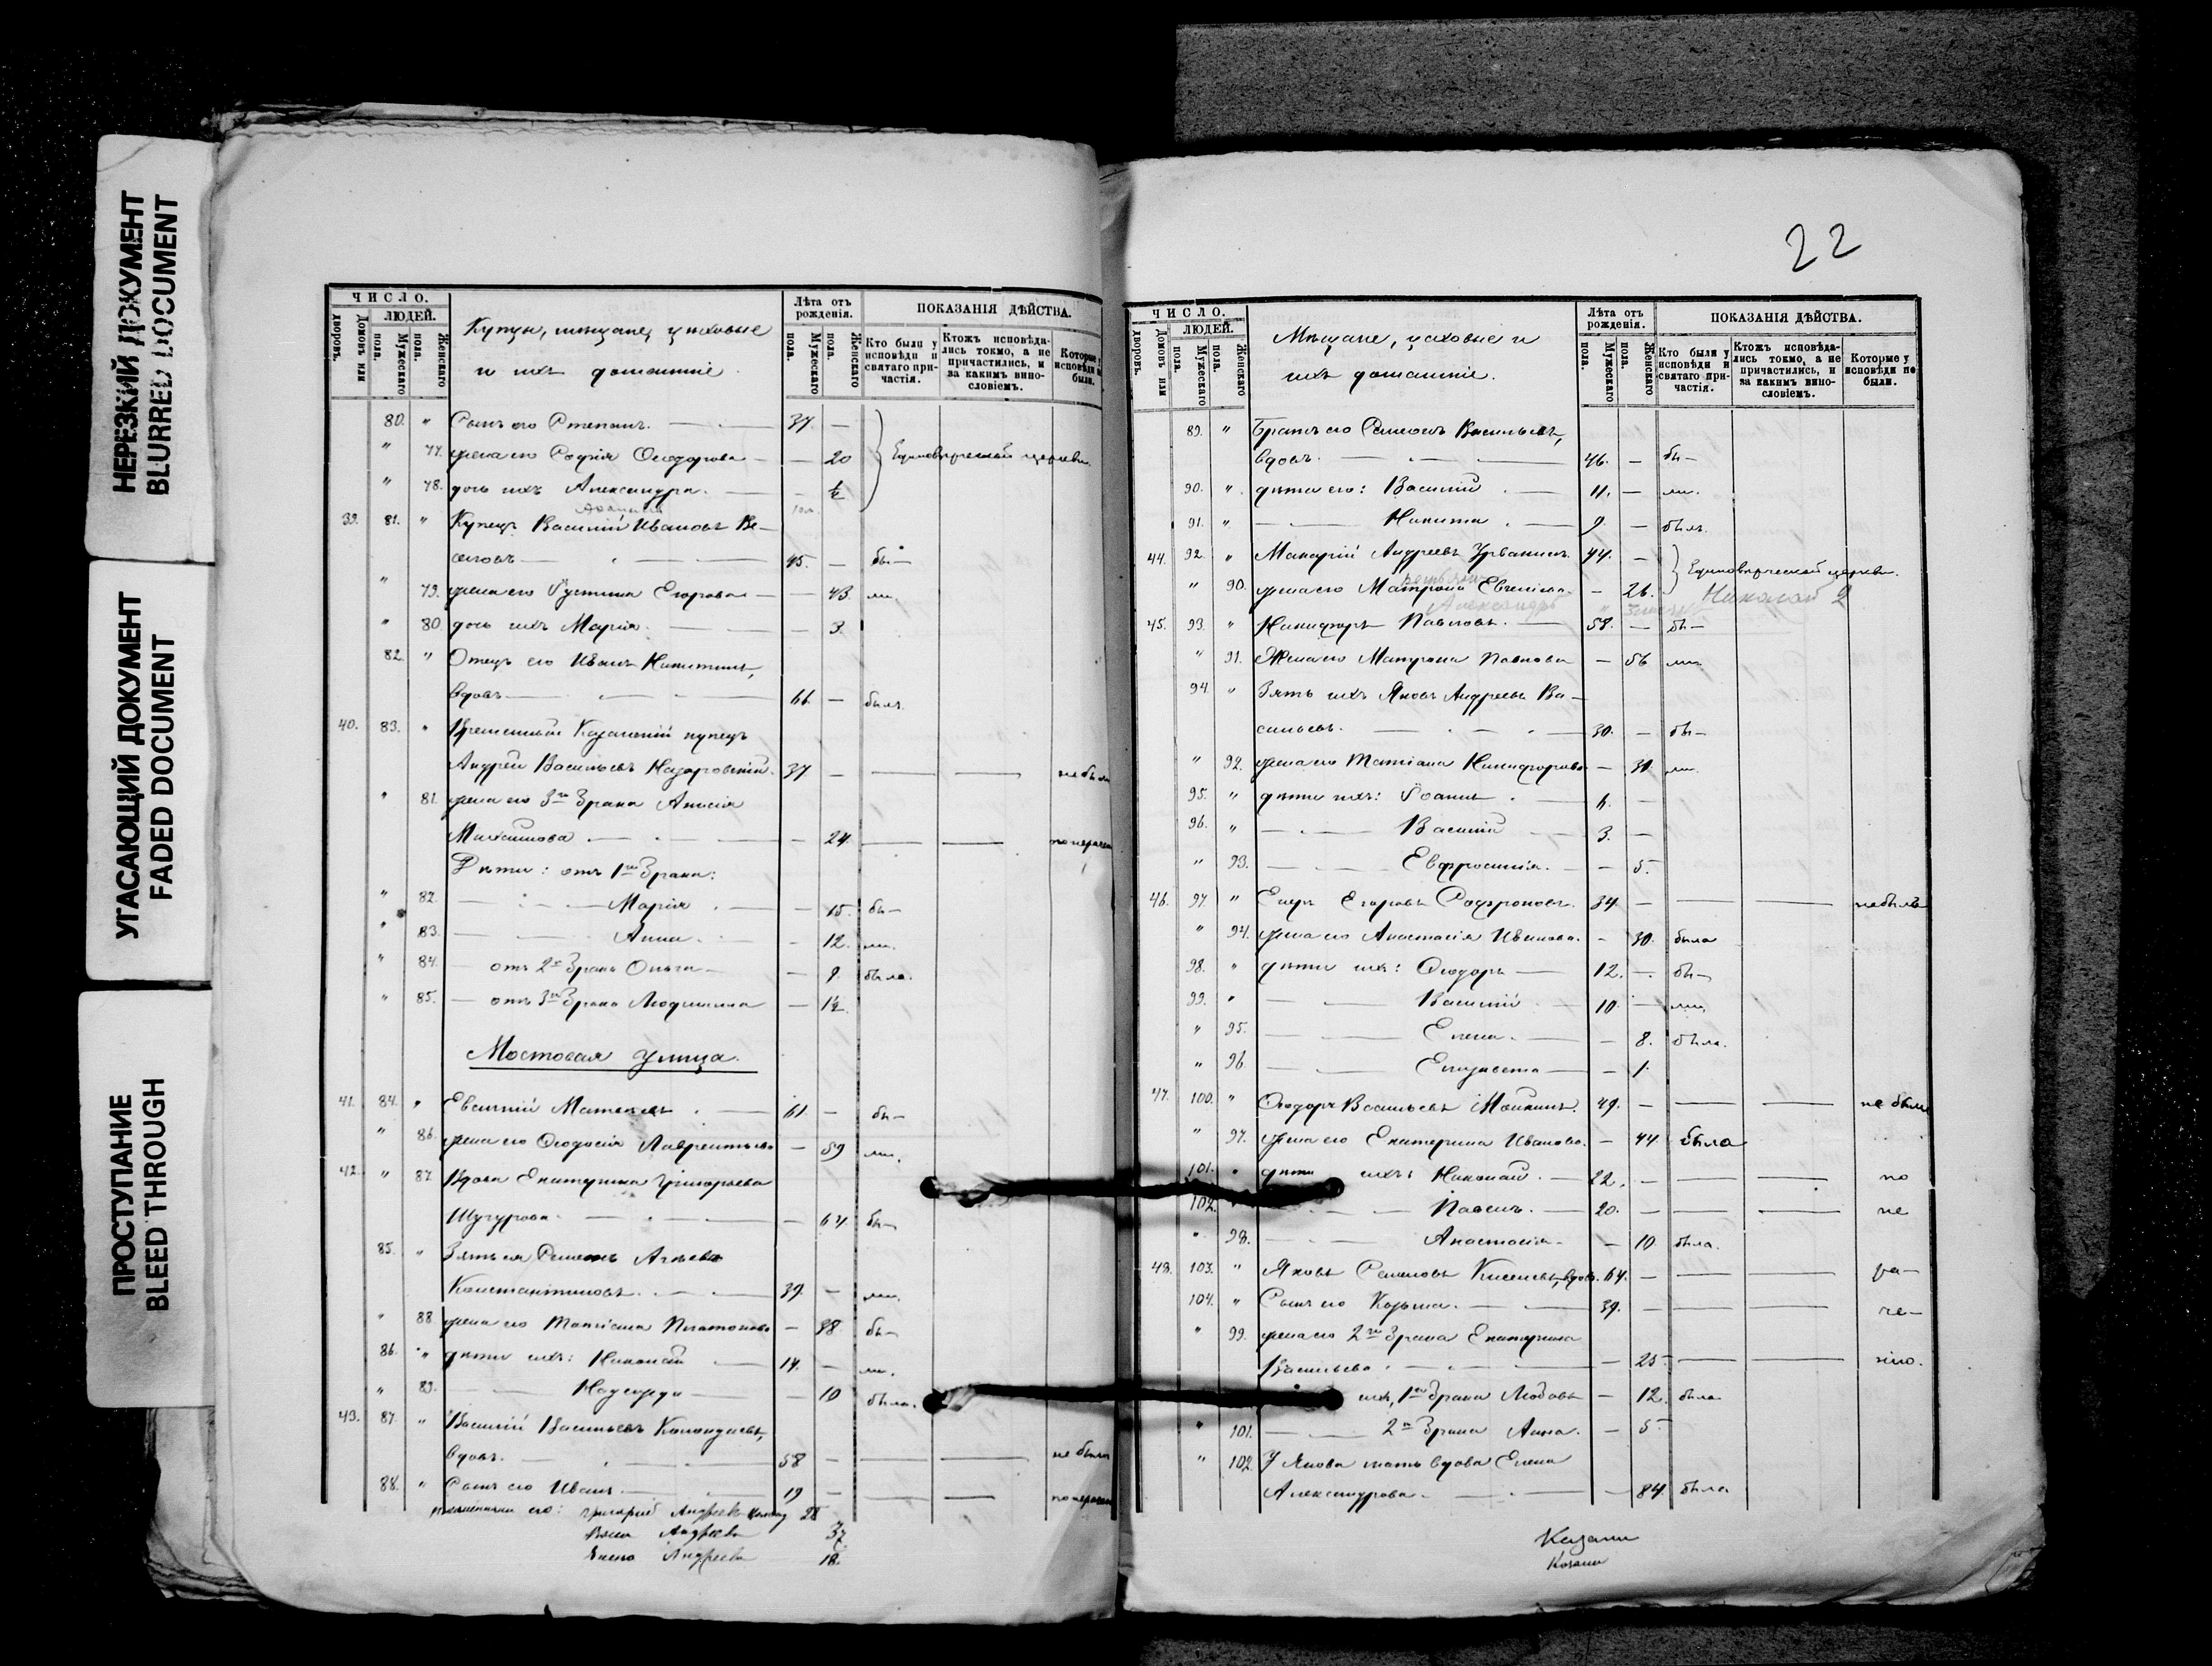 НЕРЕЗКИЙ ДОКУМЕНТ
BLURRED DOCUMENT
УГАСАЮЩИЙ ДОКУМЕНТ
FADED DOCUMENT
ПРОСТУПАНИЕ
BLEED THROUGH
ЧИСЛО.
ЛЮДЕЙ.
Домовъ или дворовъ.
Мужескаго пола.
Женскаго пола.
Купцы, мѣщане, цеховые
и ихъ домашніе.
Лѣта отъ рожденія.
Мужескаго пола.
Женскаго пола.
ПОКАЗАНІЯ ДѢЙСТВА.
Кто были у исповѣди и святаго причастія.
Ктожъ исповѣдались токмо, а не причастились, и за какимъ винословіемъ.
Которые у исповѣди не были.
80. " Сынъ его Степанъ. 37. —
" 77. жена его Софія Ѳеодорова — 20 Единовѣрческой церкви.
" 78. дочь ихъ Александра. — ½
39. 81. " Купецъ Василій Ивановъ Ве-
селовъ 45. — бы-
" 79. жена его Іустина Егорова — 43. ли.
" 80. дочь ихъ Марія — 3.
82. " Отецъ его Иванъ Никитинъ,
вдовъ 66. — былъ.
40. 83. " Временный Казанскій купецъ
Андрей Васильевъ Назаровскій. 37 — не былъ
" 81. жена его 3го брака Анисія
Михайлова — 24.
Дѣти: отъ 1го брака:
" 82. Марія — 15. бы-
" 83. Анна. — 12. ли.
" 84. отъ 2го брака Ольга — 9. была.
" 85. отъ 3го брака Людмила — 1½
Мостовая улица.
41. 84. " Евгеній Матвѣевъ 61. — бы-
" 86. жена его Ѳеодосія Лаврентьева — 59 ли.
42. " 87. Вдова Екатерина Григорьева
— 64. бы-
85. " Зять ея Семенъ
Константиновъ. 39. — ли.
" 88. жена его Татіана Платонова — 38. бы-
86. " дѣти ихъ: Николай 14. — ли.
" 89. Надежда — 10 была.
43. 87. " Василій Васильевъ
вдовъ. 58 — не былъ
88. " Сынъ его Иванъ 19 —
его: Григорій Андреевъ 28
Андреева 32
Андреева 18.
22
ЧИСЛО.
ЛЮДЕЙ.
Домовъ или дворовъ.
Мужескаго пола.
Женскаго пола.
Мѣщане, цеховые и
ихъ домашніе.
Лѣта отъ рожденія.
Мужескаго пола.
Женскаго пола.
ПОКАЗАНІЯ ДѢЙСТВА.
Кто были у исповѣди и святаго причастія.
Ктожъ исповѣдались токмо, а не причастились, и за какимъ винословіемъ.
Которые у исповѣди не были.
89. " Братъ его Семенъ Васильевъ,
вдовъ. 46. — бы-
90. " дѣти его: Василій 11. — ли.
91. " Никита 9. — былъ.
44. 92. " Макарій Андреевъ 44. — Единовѣрческой церкви.
" 90. жена его Матрона — 26. Николай 2
Александръ
45. 93. " Никифоръ Павловъ. 58. — бы-
" 91. Жена его Матрона Павлова — 56 ли.
94. " Зять ихъ Яковъ Андреевъ Ва-
сильевъ. 30. — бы-
" 92. жена его Татіана Никифорова — 30. ли.
95. " дѣти ихъ: Іоаннъ 6. —
96. " Василій 3. —
" 93. Евфросинія. — 5.
46. 97 " Егоръ Егоровъ Софроновъ. 34. — не былъ
" 94. жена его Анастасія Иванова. — 30. была
98. " дѣти ихъ: Ѳеодоръ 12. — бы-
99. " Василій 10. — ли.
" 95. Елена. — 8. была.
" 96. Елизавета — 1.
47. 100. " Ѳеодоръ Васильевъ 49. — не были
" 97. жена его Екатерина Иванова. — 44. была
101. " дѣти ихъ: Николай. 22. — по
102. Павелъ. 20. — не
" 98. Анастасія. — 10 была.
48. 103. " Яковъ Семеновъ Киселевъ, вдовъ. 64. — ра-
104. " Сынъ его Козьма. 39. — че-
" 99. жена его 2го брака Екатерина
Васильева. — 25 нію.
ихъ, 1го брака Любовь — 12. была.
" 101. 2го брака Анна. — 5
" 102. У Якова мать вдова Елена
Александрова. — 84. была
Казани
Казани